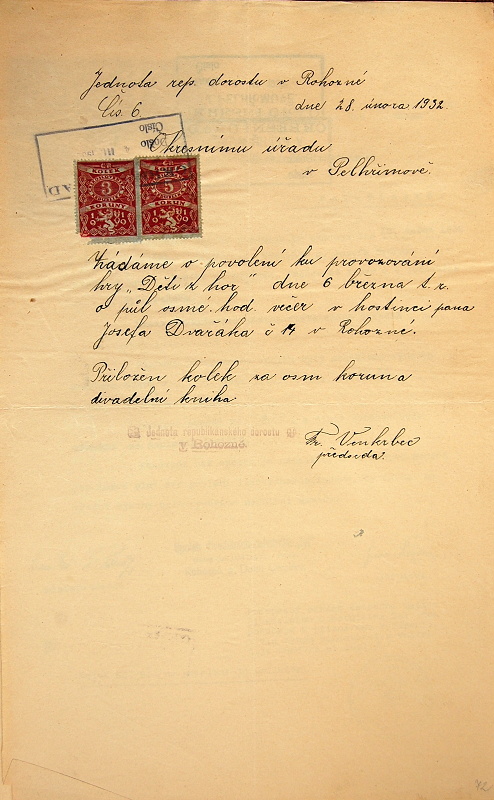 Jednota rep. dorostu v Rohozné
Čís. 6. dne 28. února 1932.
Došlo
Číslo
Okresnímu úřadu
v Pelhřimově.
KOLEK
3
KORUNY
KOLEK
5
KORUN
Žádáme o povolení ku provozování
hry „Děti z hor" dne 6 března t. r.
o půl osmé hod. večer v hostinci pana
Josefa Dvařáka č 14 v Rohozné.
Přiložen kolek za osm korun a
divadelní kniha
Jednota republikánského dorostu
v Rohozné
Fr. Venkrbec
předseda.
72